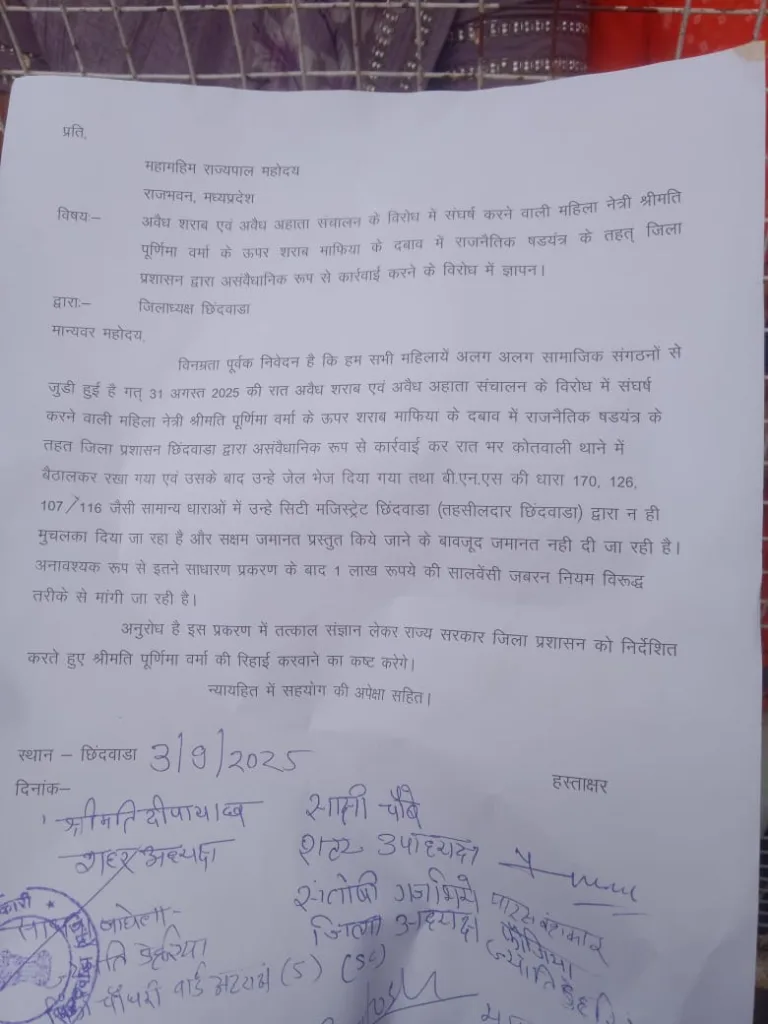 प्रति,
महामहिम राज्यपाल महोदय
राजभवन, मध्यप्रदेश
विषयः– अवैध शराब एवं अवैध अहाता संचालन के विरोध में संघर्ष करने वाली महिला नेत्री श्रीमति
पूर्णिमा वर्मा के ऊपर शराब माफिया के दबाव में राजनैतिक षडयंत्र के तहत् जिला
प्रशासन द्वारा असंवैधानिक रूप से कार्रवाई करने के विरोध में ज्ञापन।
द्वाराः– जिलाध्यक्ष छिंदवाडा
मान्यवर महोदय,
विनम्रता पूर्वक निवेदन है कि हम सभी महिलायें अलग अलग सामाजिक संगठनों से
जुडी हुई है गत् 31 अगस्त 2025 की रात अवैध शराब एवं अवैध अहाता संचालन के विरोध में संघर्ष
करने वाली महिला नेत्री श्रीमति पूर्णिमा वर्मा के ऊपर शराब माफिया के दबाव में राजनैतिक षडयंत्र के
तहत जिला प्रशासन छिंदवाडा द्वारा असंवैधानिक रूप से कार्रवाई कर रात भर कोतवाली थाने में
बैठालकर रखा गया एवं उसके बाद उन्हे जेल भेज दिया गया तथा बी.एन.एस की धारा 170, 126,
107/116 जैसी सामान्य धाराओं में उन्हे सिटी मजिस्ट्रेट छिंदवाडा (तहसीलदार छिंदवाडा) द्वारा न ही
मुचलका दिया जा रहा है और सक्षम जमानत प्रस्तुत किये जाने के बावजूद जमानत नही दी जा रही है।
अनावश्यक रूप से इतने साधारण प्रकरण के बाद 1 लाख रूपये की सालवेंसी जबरन नियम विरूद्ध
तरीके से मांगी जा रही है।
अनुरोध है इस प्रकरण में तत्काल संज्ञान लेकर राज्य सरकार जिला प्रशासन को निर्देशित
करते हुए श्रीमति पूर्णिमा वर्मा की रिहाई करवाने का कष्ट करेगे।
न्यायहित में सहयोग की अपेक्षा सहित।
स्थान – छिंदवाडा 3/9/2025
दिनांक– हस्ताक्षर
श्रीमति दीपा यादव साक्षी चौबे
शहर अध्यक्ष शहर उपाध्यक्ष
संतोषी गजभिये
जिला अध्यक्ष फौजिया
चौधरी वार्ड